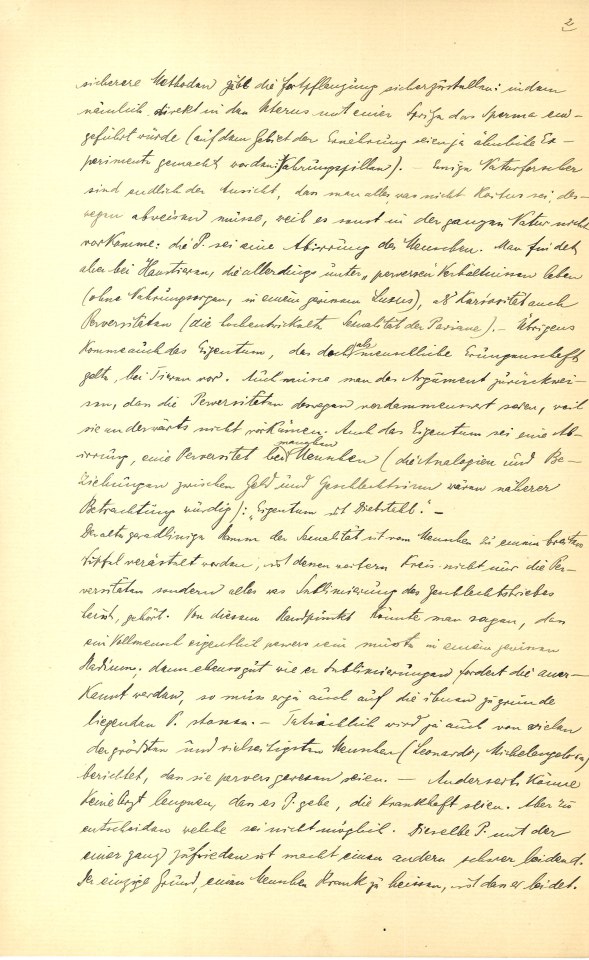 2
sicherere Methoden gibt die Fortpflanzung sicherzustellen: indem
nämlich direkt in den Uterus mit einer Spritze das Sperma ein-
geführt würde (auf dem Gebiet der Ernährung seien ja ähnliche Ex-
perimente gemacht worden: Nahrungspillen). — Einige Naturforscher
sind endlich der Ansicht, dass man alles, was nicht Koitus sei, des-
wegen abweisen müsse, weil es sonst in der ganzen Natur nicht
vorkomme: die P. sei eine Abirrung des Menschen. Man findet
aber bei Haustieren, die allerdings unter perversen Verhältnissen leben
(ohne Nahrungssorgen, in einem gewissen Luxus), als Kuriosität auch
Perversitäten (die hochentwickelte Sexualität der Paviane). — Übrigens
komme auch das Eigentum, das doch als menschliche Errungenschaft
gelte, bei Tieren vor. Auch müsse man das Argument zurückwei-
sen, dass die Perversitäten deswegen verdammenswert seien, weil
sie anderwärts nicht vorkämen. Auch das Eigentum sei eine Ab-
irrung, eine Perversität bei manchen Menschen (die Analogien und Be-
ziehungen zwischen Geld und Geschlechtssinn wären näherer
Betrachtung würdig): "Eigentum ist Diebstahl." —
Der alte geradlinige Stamm der Sexualität ist vom Menschen zu einem breiten
Wipfel verästelt worden, in dessen weitern Kreis nicht nur die Per-
versitäten sondern alles was Sublimierung des Geschlechtstriebes
heisst, gehört. Von diesem Standpunkt könnte man sagen, dass
ein Vollmensch eigentlich pervers sein müsste in einem gewissen
Stadium; denn ebenso gut wie er Sublimierungen fordert die aner-
kannt werden, so muss er ja auch auf die ihnen zugrunde
liegenden P. stossen. — Tatsächlich wird ja auch von vielen
der grössten und vielseitigsten Menschen (Leonardo, Michelangelo
berichtet, dass sie pervers gewesen seien. — Anderseits könne
kein Arzt leugnen, dass es P. gebe, die krankhaft seien. Aber zu
entscheiden welche sei nicht möglich. Dieselbe P. mit der
einer ganz zufrieden ist macht einen andern schwer leidend.
Der einzige Grund, einen Menschen krank zu heissen, ist dass er leidet.